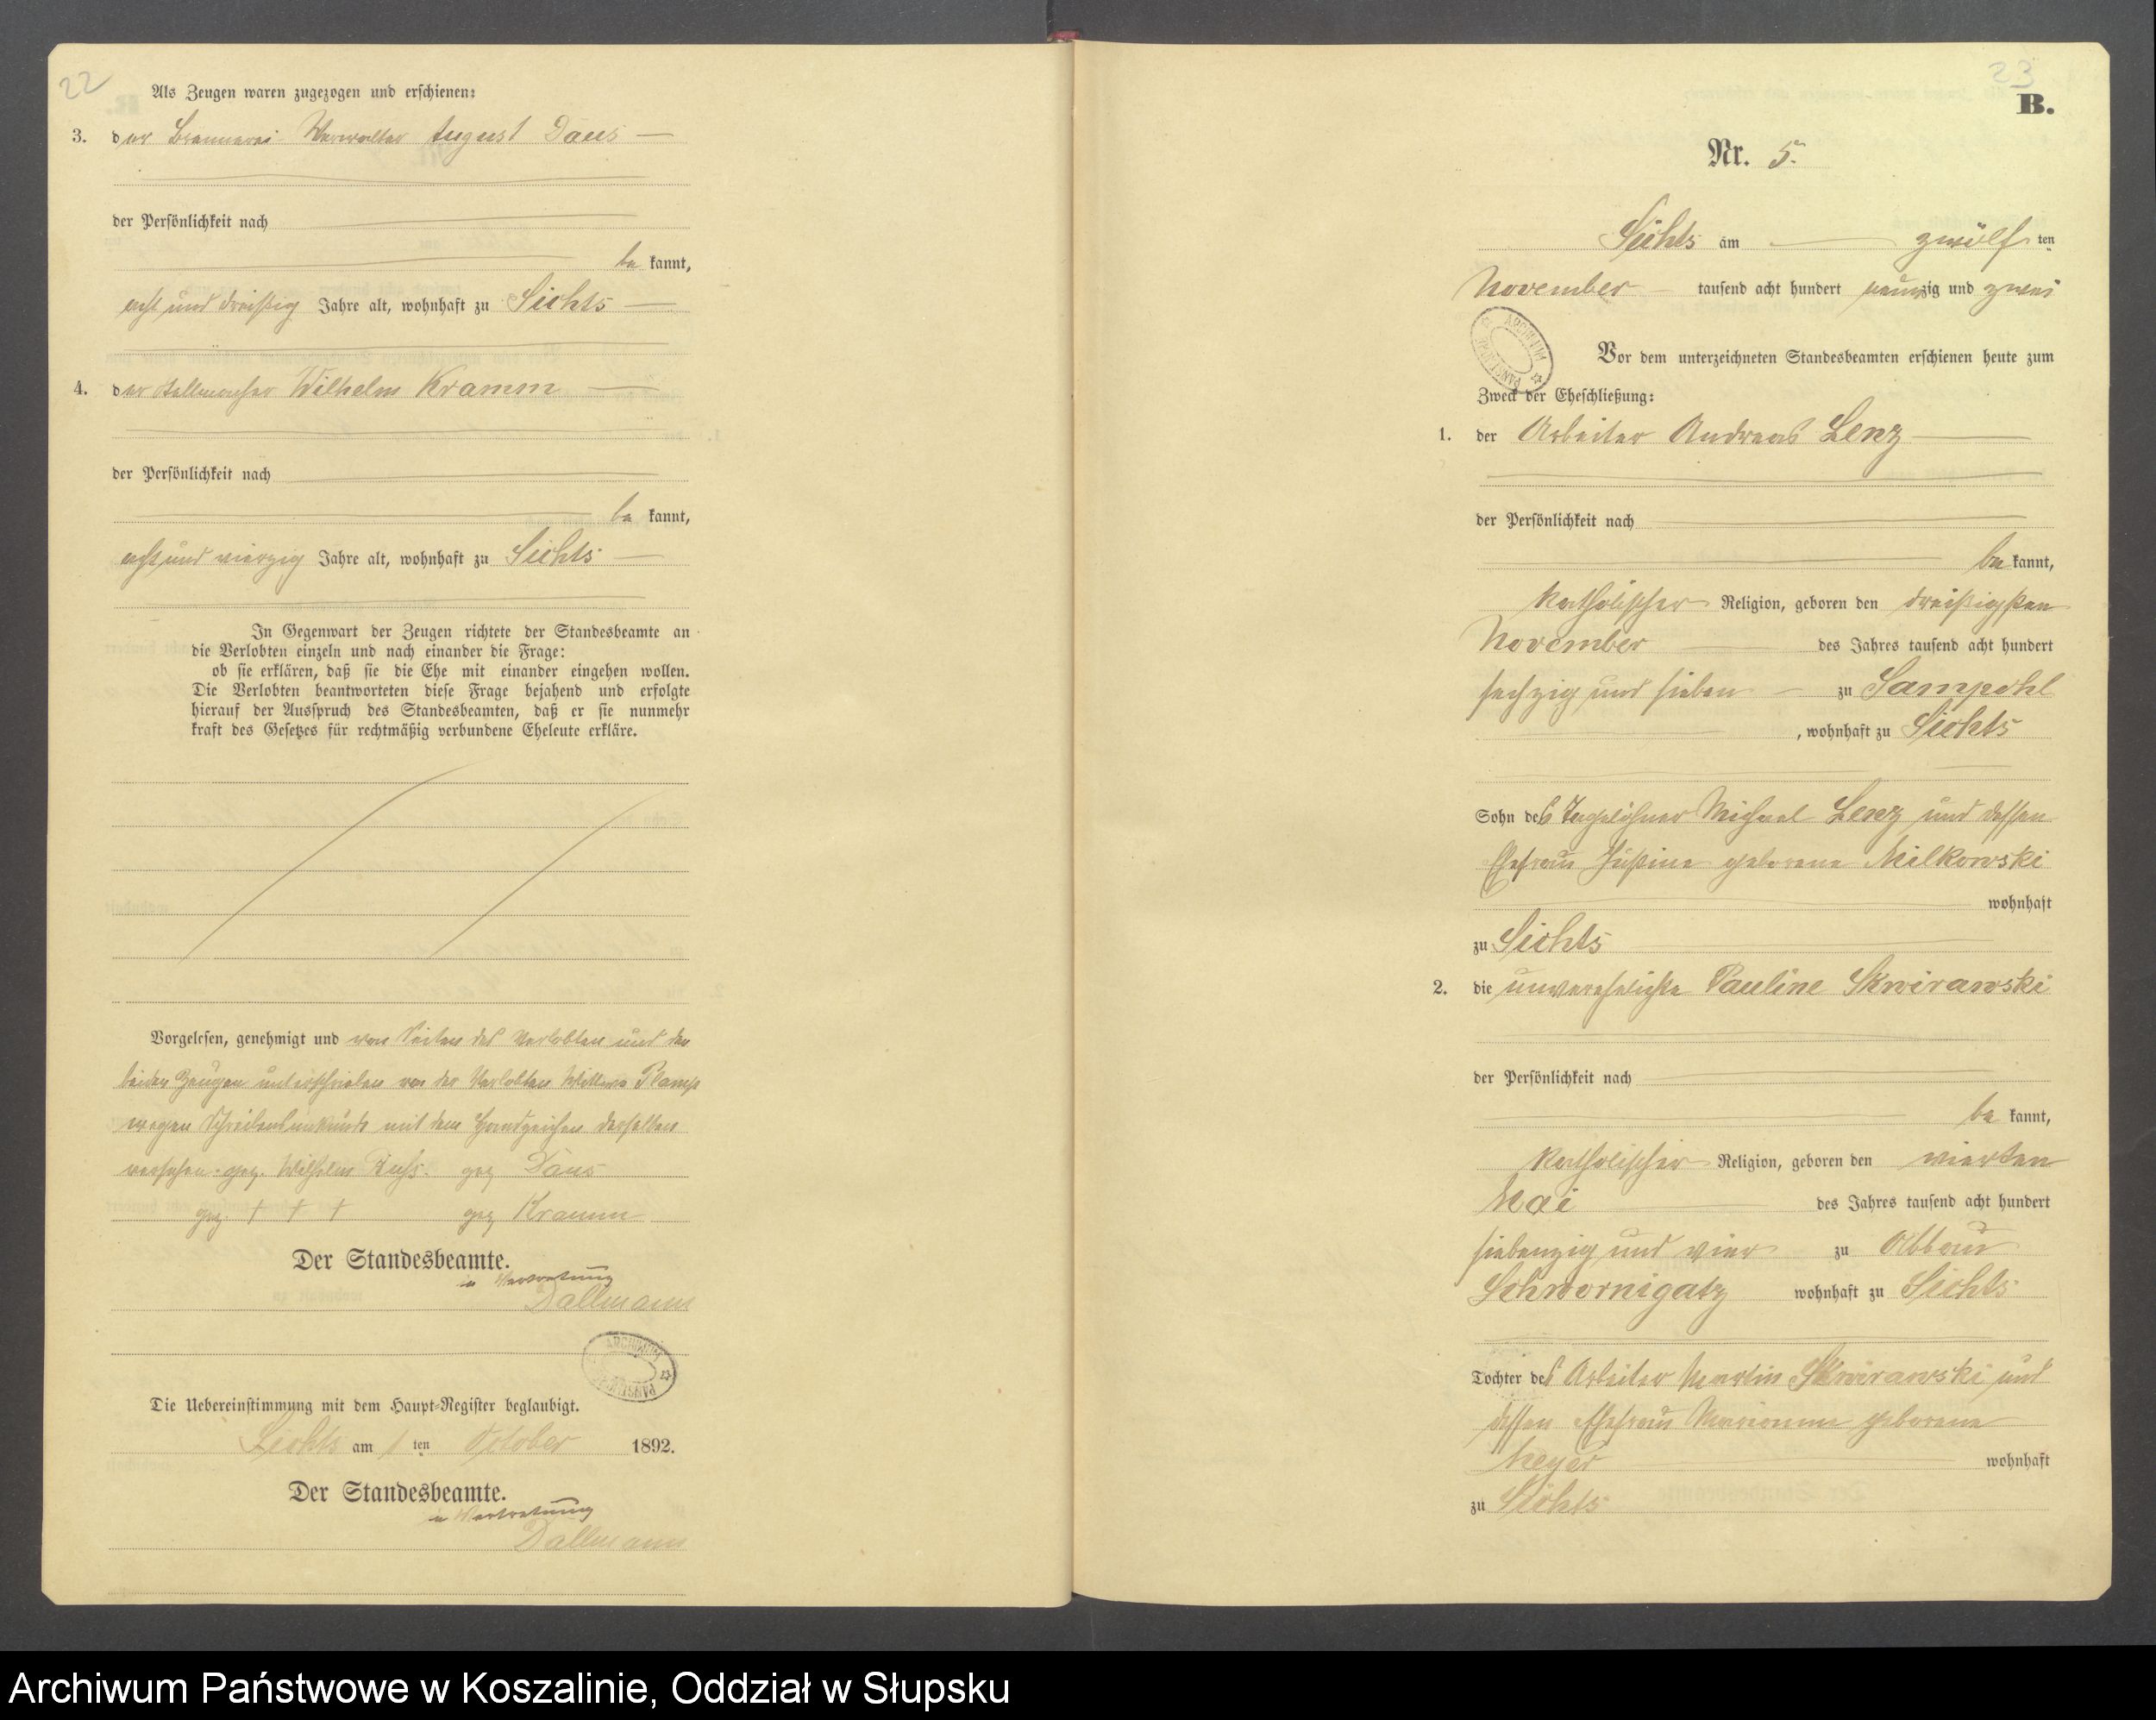 22
Als Zeugen waren zugezogen und erschienen:
3. der Brennerei Verwalter August Daus
der Persönlichkeit nach
be kannt,
acht und dreißig Jahre alt, wohnhaft zu Sichts
4. der Stellmacher Wilhelm Kramm
der Persönlichkeit nach
be kannt,
acht und vierzig Jahre alt, wohnhaft zu Sichts
In Gegenwart der Zeugen richtete der Standesbeamte an
die Verlobten einzeln und nach einander die Frage:
ob sie erklären, daß sie die Ehe mit einander eingehen wollen.
Die Verlobten beantworteten diese Frage bejahend und erfolgte
hierauf der Ausspruch des Standesbeamten, daß er sie nunmehr
kraft des Gesetzes für rechtmäßig verbundene Eheleute erkläre.
Vorgelesen, genehmigt und von Seiten des Verlobten und der
beiden Zeugen unterschrieben von der Verlobten Wittwe
wegen Schreibensunkunde mit dem Handzeichen derselben
versehen. gez. Wilhelm gez Daus
gez. † † † gez Kramm
Der Standesbeamte.
in Vertretung
Dallmann
ARCHIWUM PAŃSTWOWE
Die Uebereinstimmung mit dem Haupt-Register beglaubigt.
Sichts am 1 ten October 1892.
Der Standesbeamte.
in Vertretung
Dallmann
23
B.
Nr. 5.
Sichts am zwölf ten
November tausend acht hundert neunzig und zwei
ARCHIWUM PAŃSTWOWE
Vor dem unterzeichneten Standesbeamten erschienen heute zum
Zweck der Eheschließung:
1. der Arbeiter Andreas Lenz
der Persönlichkeit nach
be kannt,
katholischer Religion, geboren den dreißigsten
November des Jahres tausend acht hundert
sechzig und sieben zu Sampohl
, wohnhaft zu Sichts
Sohn des Tagelöhner Michael Lenz und dessen
Ehefrau Justine geborene Milkowski
wohnhaft
zu Sichts
2. die unverehelichte Pauline Skwirawski
der Persönlichkeit nach
be kannt,
katholischer Religion, geboren den vierten
Mai des Jahres tausend acht hundert
siebenzig und vier zu Abbau
Schwornigatz wohnhaft zu Sichts
Tochter des Arbeiter Martin Skwirawski und
dessen Ehefrau Marianna geborene
Meyer wohnhaft
zu Sichts
Archiwum Państwowe w Koszalinie, Oddział w Słupsku